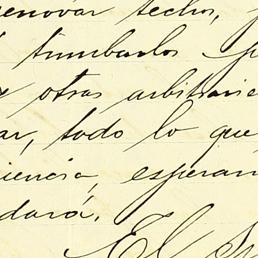 enovar techos,
tumbarlos
otras arbitrarie
ar, todo lo que
iencia, esperan
dará.
El